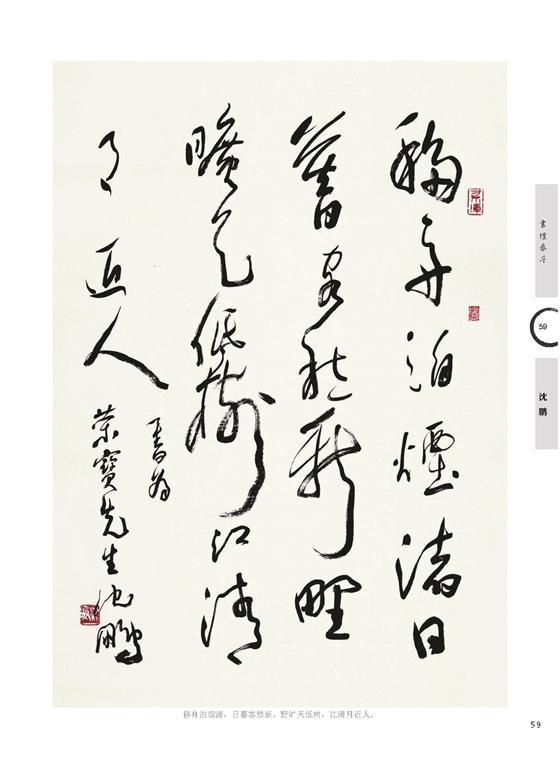 移舟泊煙渚日
暮客愁新野
曠天低樹江清
月近人
書為
榮寶先生沈鵬
書壇泰斗
59
沈鵬
移舟泊烟渚，日暮客愁新。野旷天低树，江清月近人。
59